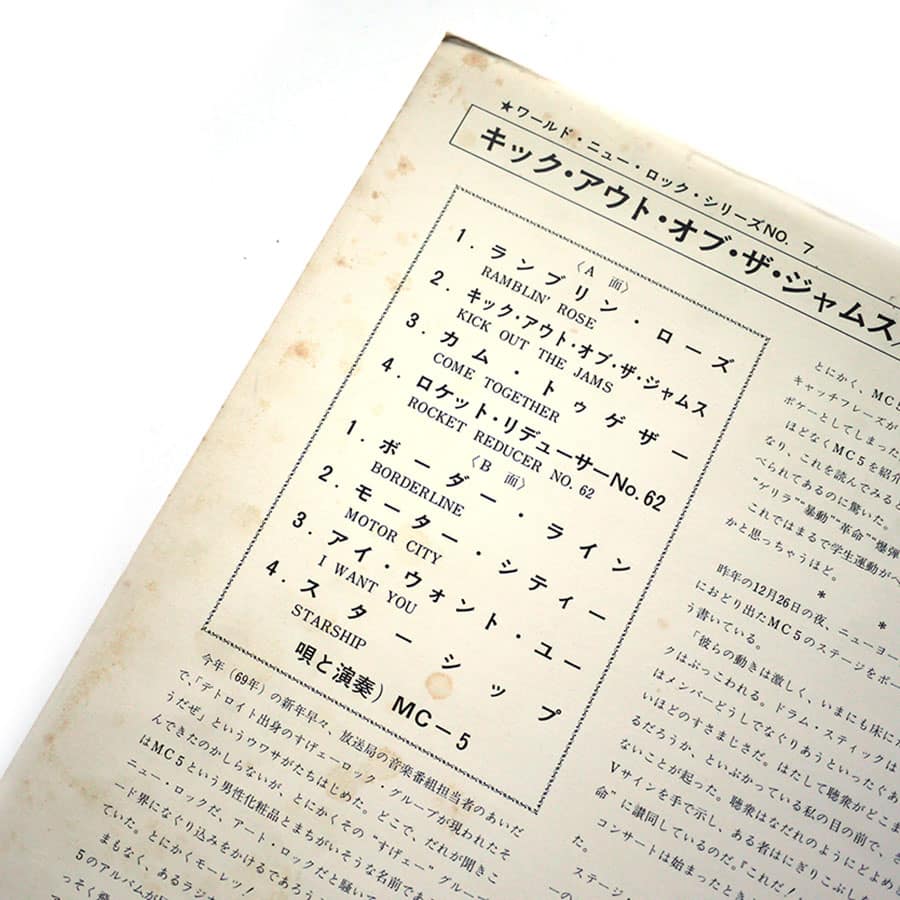 ★ワールド・ニュー・ロック・シリーズNO. 7
キック・アウト・オブ・ザ・ジャムス/
〈A 面〉
1. ランブリン・ローズ
RAMBLIN' ROSE
2. キック・アウト・オブ・ザ・ジャムス
KICK OUT THE JAMS
3. カム・トゥゲザー
COME TOGETHER
4. ロケット・リデューサーNo.62
ROCKET REDUCER NO. 62
〈B 面〉
1. ボーダー・ライン
BORDERLINE
2. モーター・シティー
MOTOR CITY
3. アイ・ウォント・ユー
I WANT YOU
4. スターシップ
STARSHIP
唄と演奏) MC−5
今年(69年)の新年早々、放送局の音楽番組担当者のあいだ
で、「デトロイト出身のすげェーロック・グループが現われたそ
うだぜ」というウワサがたちはじめた。どこで、だれが聞きこ
んできたのかしらないが、とにかくその“すげェー”グループ
はMC5という男性化粧品とまちがいそうな名前であ
ニュー・ロックだ、アート・ロックだと騒いで
ード界になぐり込みをかけるであろう
ていた。とにかくモーレッ!
まもなく、あるラジオ
5のアルバムが
っそく飛
とにかく、MC5
キャッチフレーズが
ボケーとしてしまった
ほどなくMC5を紹介
なり、これを読んでみると
べられてあるのに驚いた。
“ゲリラ”“暴動”“革命”“爆弾
これではまるで学生運動がペ
かと思っちゃうほど。
* *
昨年の12月26日の夜、ニューヨー
におどり出たMC5のステージをボー
う書いている。
「彼らの動きは激しく、いまにも床にた
クはぶっこわれる。ドラム・スティックは
はメンバーどうしでなぐりあうといったぐあ
いほどのすさまじさだ。はたして聴衆がどこま
るだろうか、といぶかっている私の目の前で、き
ないことが起った。聴衆はなだれのようにどよめき
Vサインを手で示し、ある者はにぎりこぶし
命”に賛同しているのだ。『これだ!
コンサートは始まったとき
た。
ステージ・
ーの